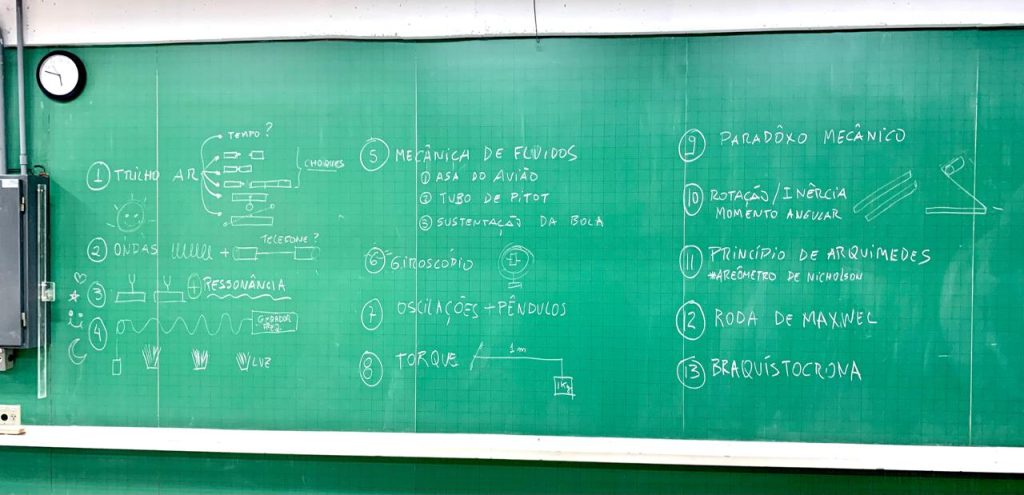 TEMPO?
① TRILHO AR
CHOIQUES
② ONDAS + TELEFONE?
③ + RESSONÂNCIA
④ GERADOR
LUZ
⑤ MECÂNICA DE FLUIDOS
① ASA DO AVIÃO
② TUBO DE PITOT
③ SUSTENTAÇÃO DA BOLA
⑥ GIROSCÓPIO
⑦ OSCILAÇÕES + PÊNDULOS
⑧ TORQUE 1m
1Kg
⑨ PARADÔXO MECÂNICO
⑩ ROTAÇÃO/INÉRCIA
MOMENTO ANGULAR
⑪ PRINCÍPIO DE ARQUIMEDES
*AREÔMETRO DE NICHOLSON
⑫ RODA DE MAXWEL
⑬ BRAQUÍSTOCRONA